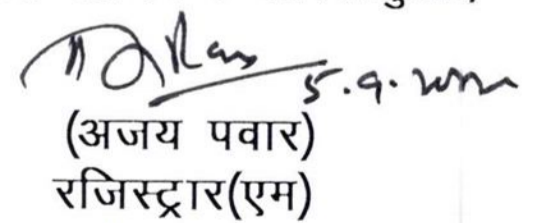 5.9.
(अजय पवार)
रजिस्ट्रार(एम)